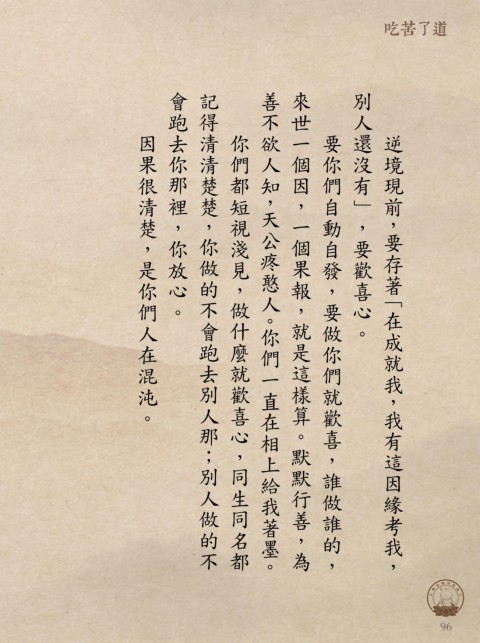 吃苦了道
逆境現前，要存著「在成就我，我有這因緣考我，
別人還沒有」，要歡喜心。
要你們自動自發，要做你們就歡喜，誰做誰的，
來世一個因，一個果報，就是這樣算。默默行善，為
善不欲人知，天公疼憨人。你們一直在相上給我著墨。
你們都短視淺見，做什麼就歡喜心，同生同名都
記得清清楚楚，你做的不會跑去別人那；別人做的不
會跑去你那裡，你放心。
因果很清楚，是你們人在混沌。
96